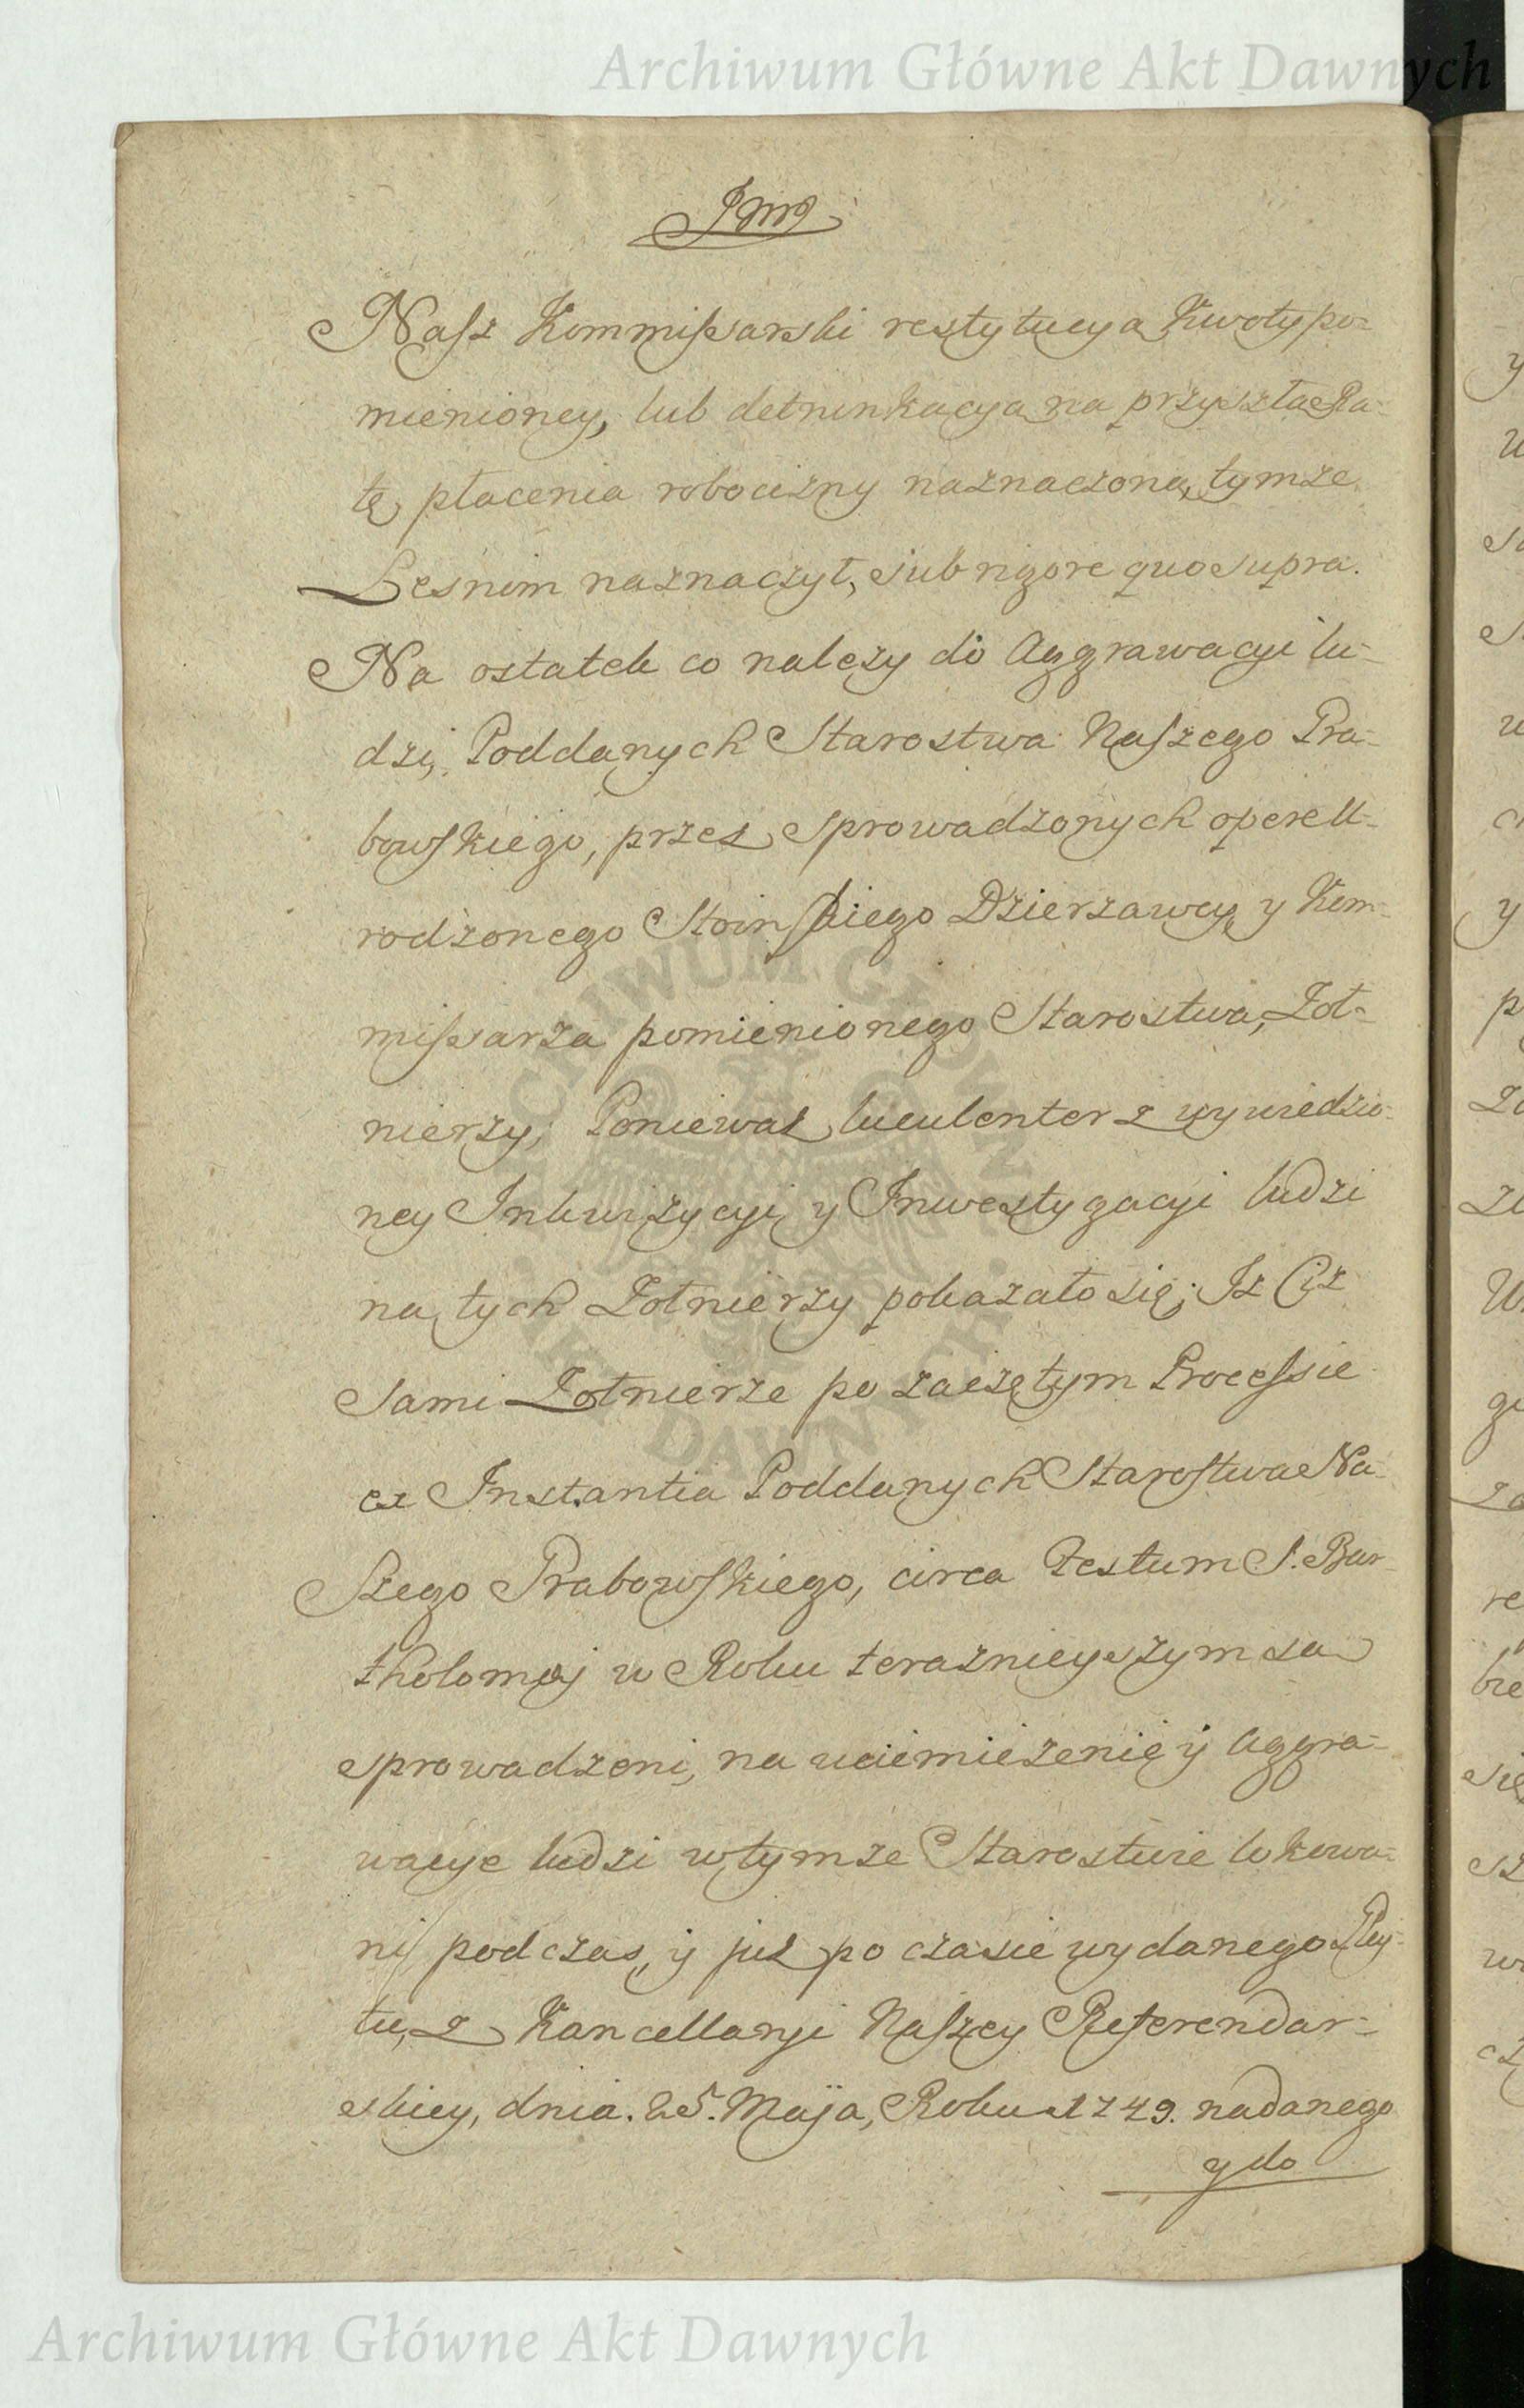 Archiwum Główne Akt Dawnych
Nasz Kommissarski restytucya Kwoty po-
mienioney, lub detrunkacya na przyszła Ra-
tę płacenia robocizny naznaczona, tymze
Lesnim naznaczył, sub rigore quo supra.
Na ostatek co nalezy do Aggrawacyi lu-
dzi, Poddanych Starostwa Naszego Pra-
bowskiego, przez sprowadzonych oper U-
rodzonego Stoinskiego Dzierzawcy y Kom-
missarza pomienionego Starostwa, Zoł-
nierzy, Poniewaz luculenter z wywiedzio-
ney Inkwizycyi y Inwestygacyi ludzi
na tych Zołnierzy pokazało się, Iz Ciz
sami Zołnierze po zaczętym Processie
ex Instantia Poddanych Starostwa Na-
szego Prabowskiego, circa Festum S. Bar-
tholomæj w Roku teraznieyszym sa
sprowadzeni, na uciemiezenie ÿ Aggra-
wacye ludzi w tymze Starostwie lokowa-
ni podczas, ÿ juz po czasie wydanego Gley-
tu, z Kancellaryi Naszey Referendar-
skiey, dnia. 25. Maÿa, Roku 1749. nadanego
y do
ARCHIWUM GŁÓWNE
AKT DAWNYCH
Archiwum Główne Akt Dawnych